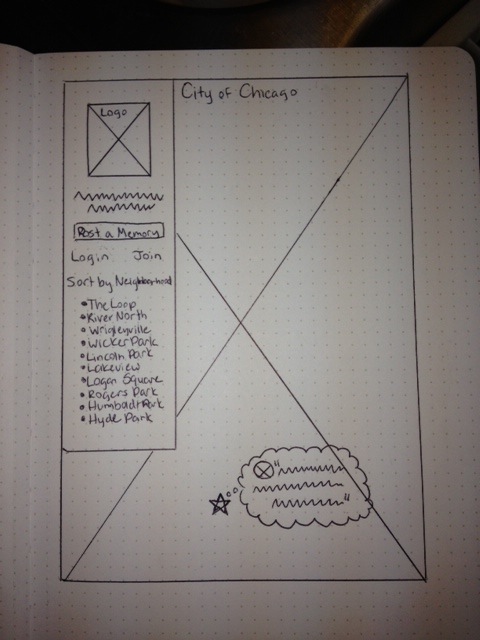 City of Chicago
Logo
Post a Memory
Login Join
Sort by Neighborhood
The Loop
River North
Wrigleyville
Wicker Park
Lincoln Park
Lakeview
Logan Square
Rogers Park
Humboldt Park
Hyde Park